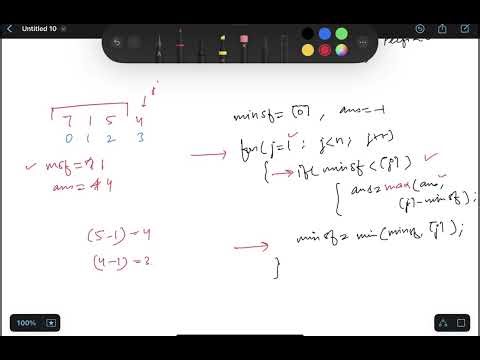 Untitled 10
7 1 5 4
0 1 2 3
msf = 7 1
ans = -1 4
(5-1) = 4
(4-1) = 3
minsf = [0], ans = -1
for(j=1; j<n; j++)
{ if(minsf < [j])
{ ans = max(ans,
[j]-minsf);
minsf = min(minsf, [j]);
}
100%